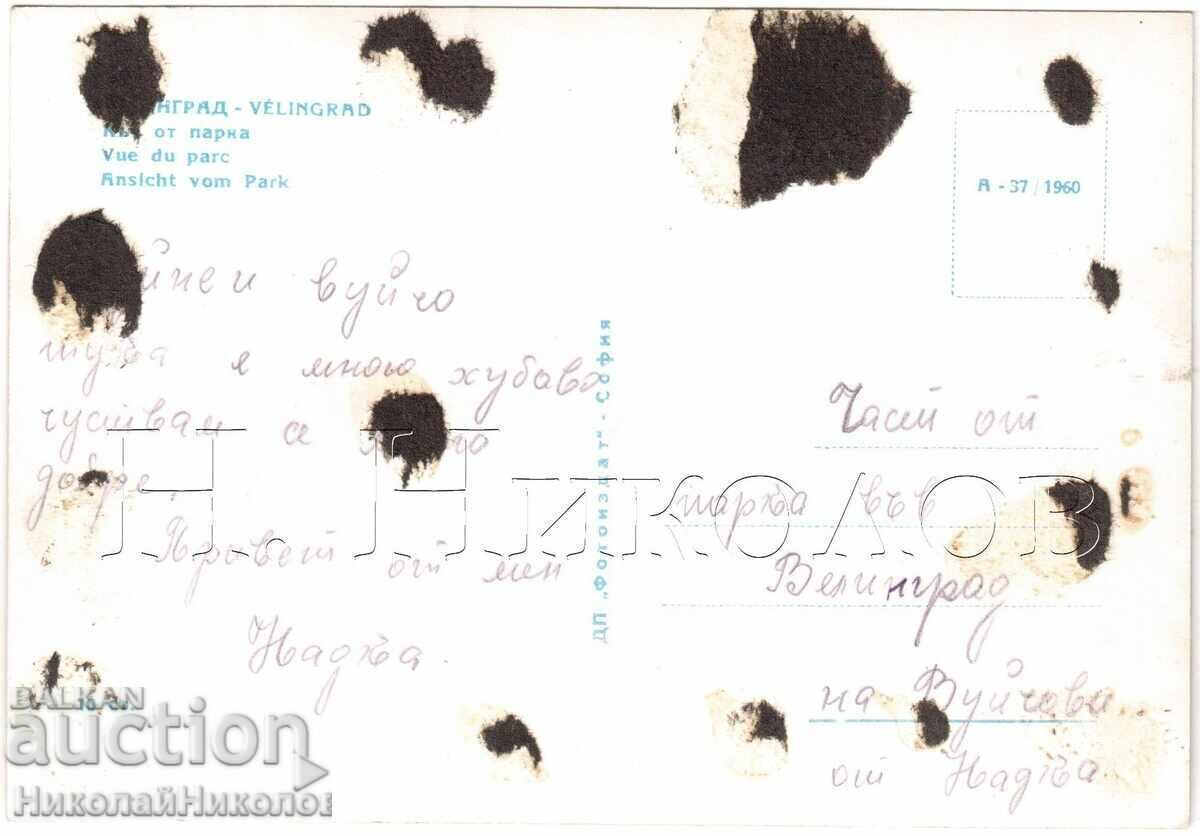 НГРАД - VÉLINGRAD
от парка
Vue du parc
Ansicht vom Park
А - 37 / 1960
вуйчо
тука я много хубаво
чуствам се
добре,
Привет от мен
Надка.
ДП „Фотоиздат" - София
Част от
парка във
Велинград
на Вуйчови
от Надка
Н. Николов
BALKAN
auction
НиколайНиколов